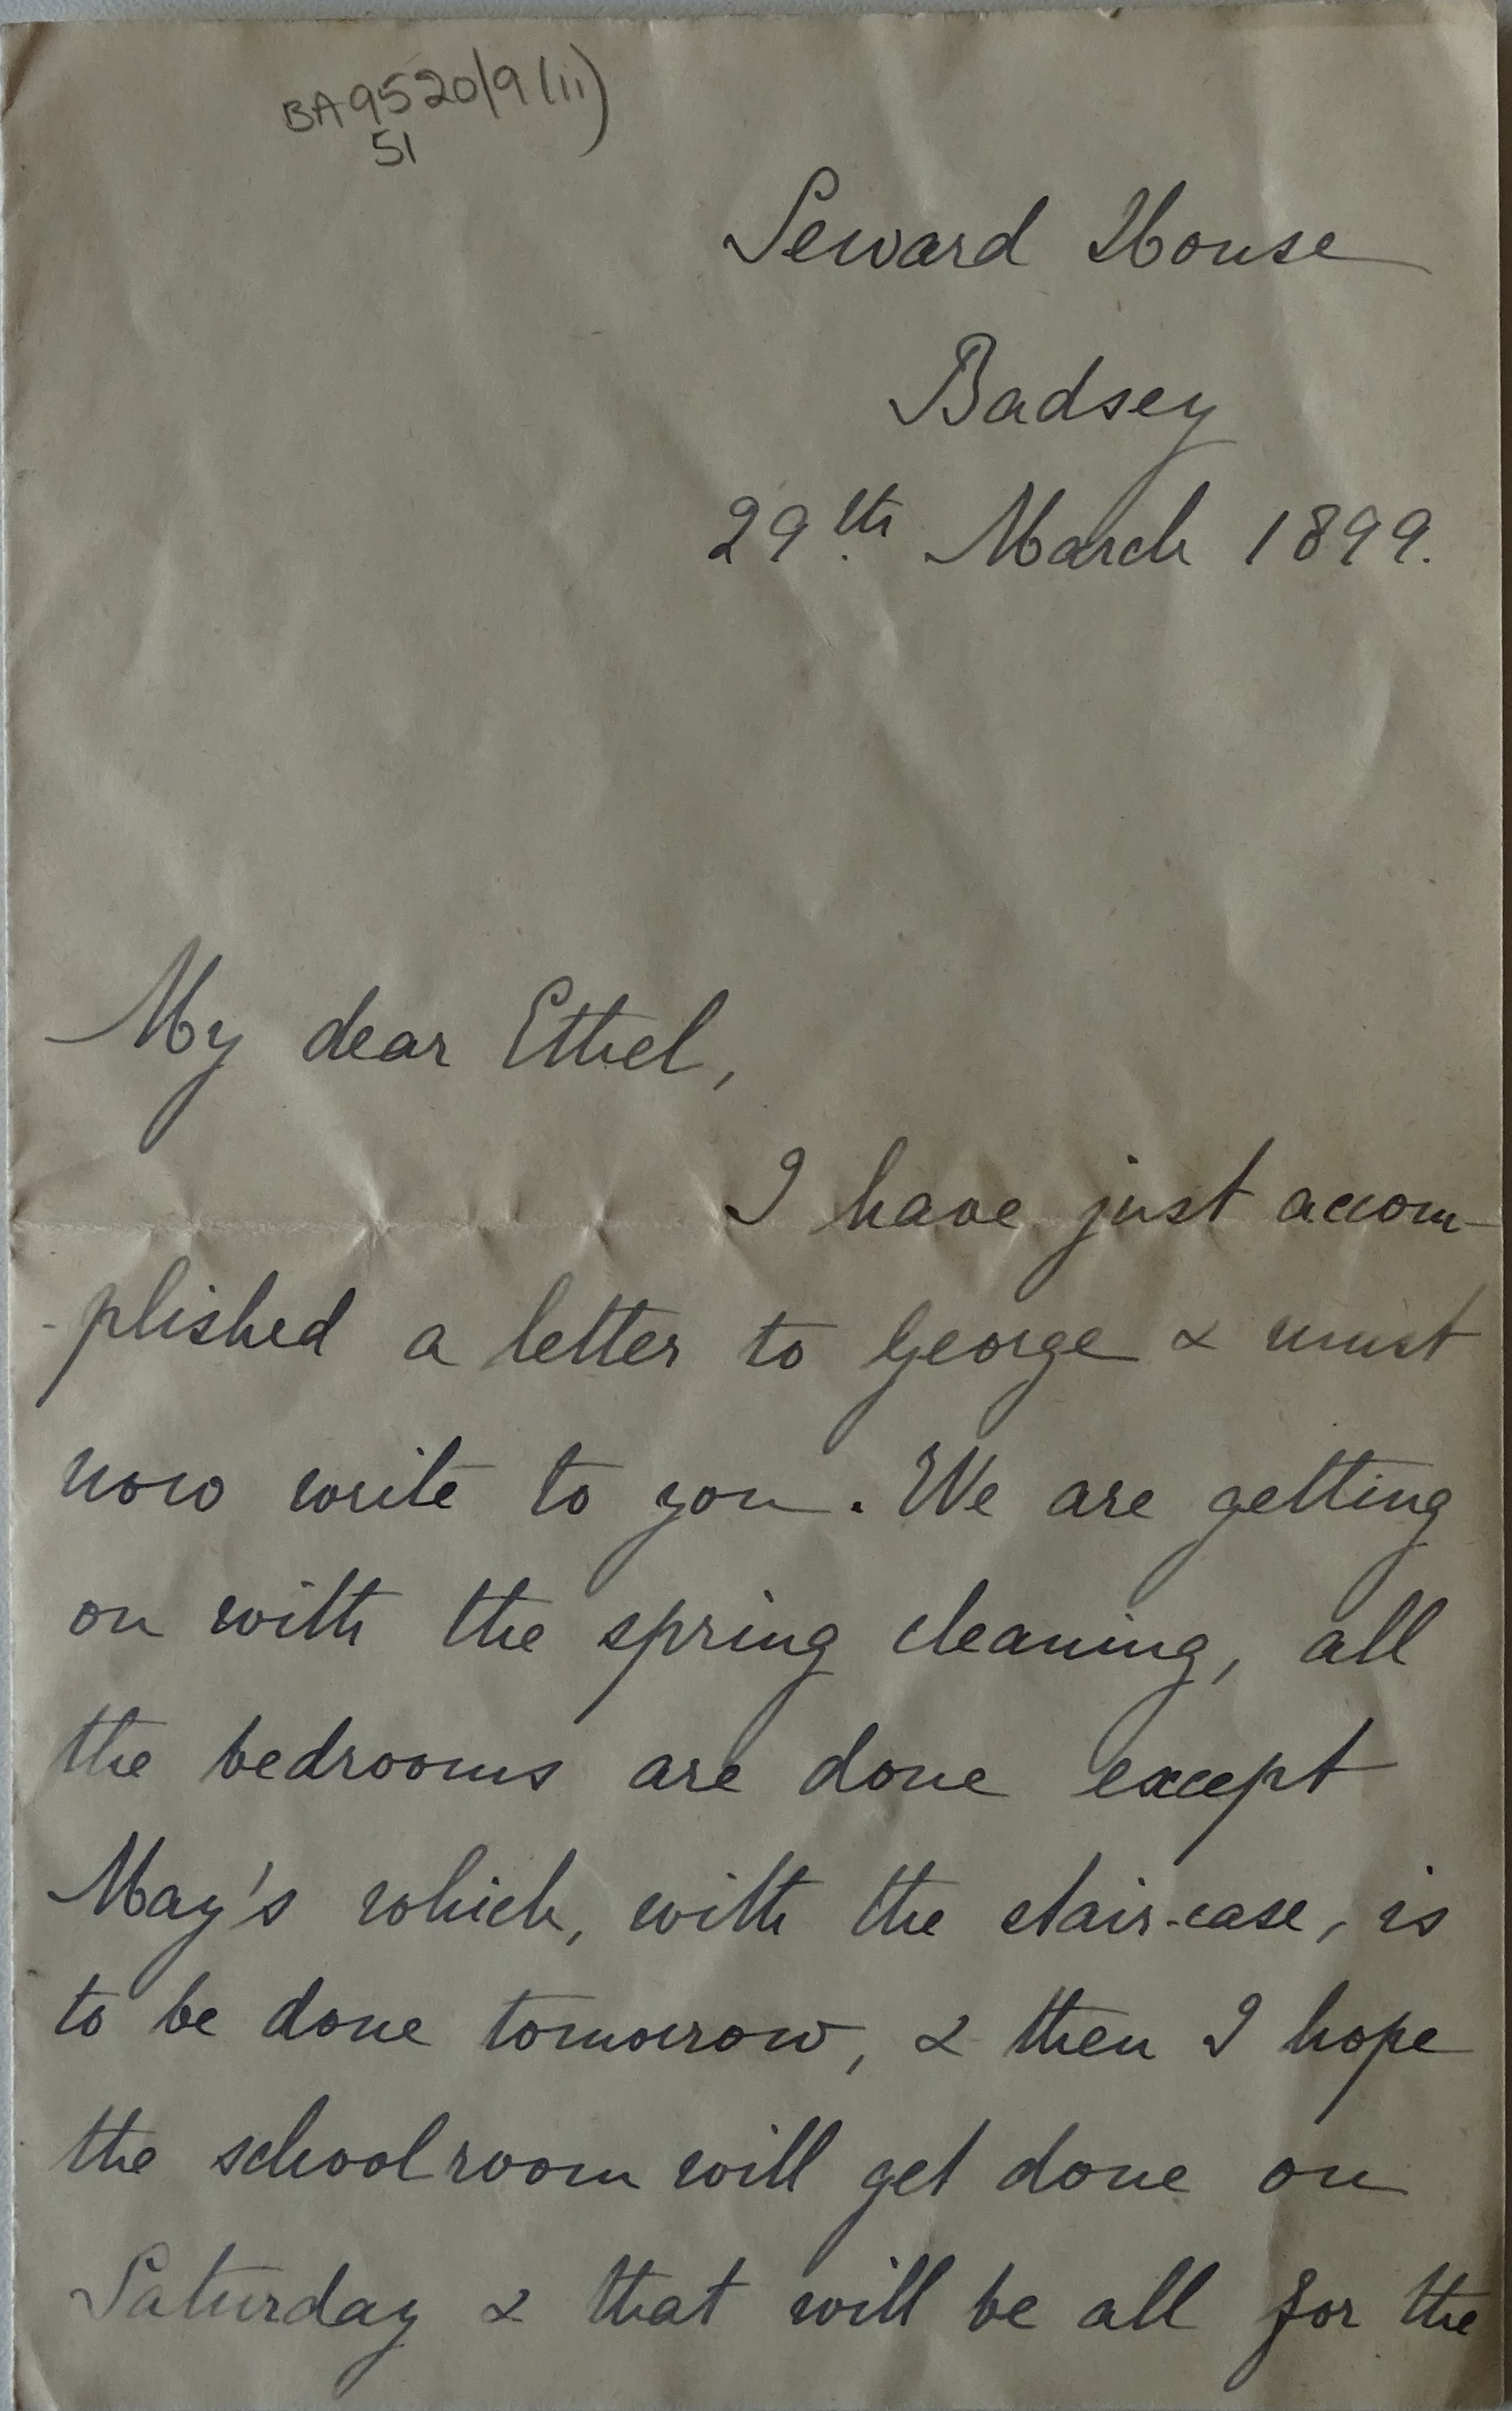 BA9520/9(ii)
51
Seward House
Badsey
29th March 1899.
My dear Ethel,
I have just accom-
-plished a letter to George & must
now write to you. We are getting
on with the spring cleaning, all
the bedrooms are done except
May's which, with the stair-case, is
to be done tomorrow, & then I hope
the schoolroom will get done on
Saturday & that will be all for the